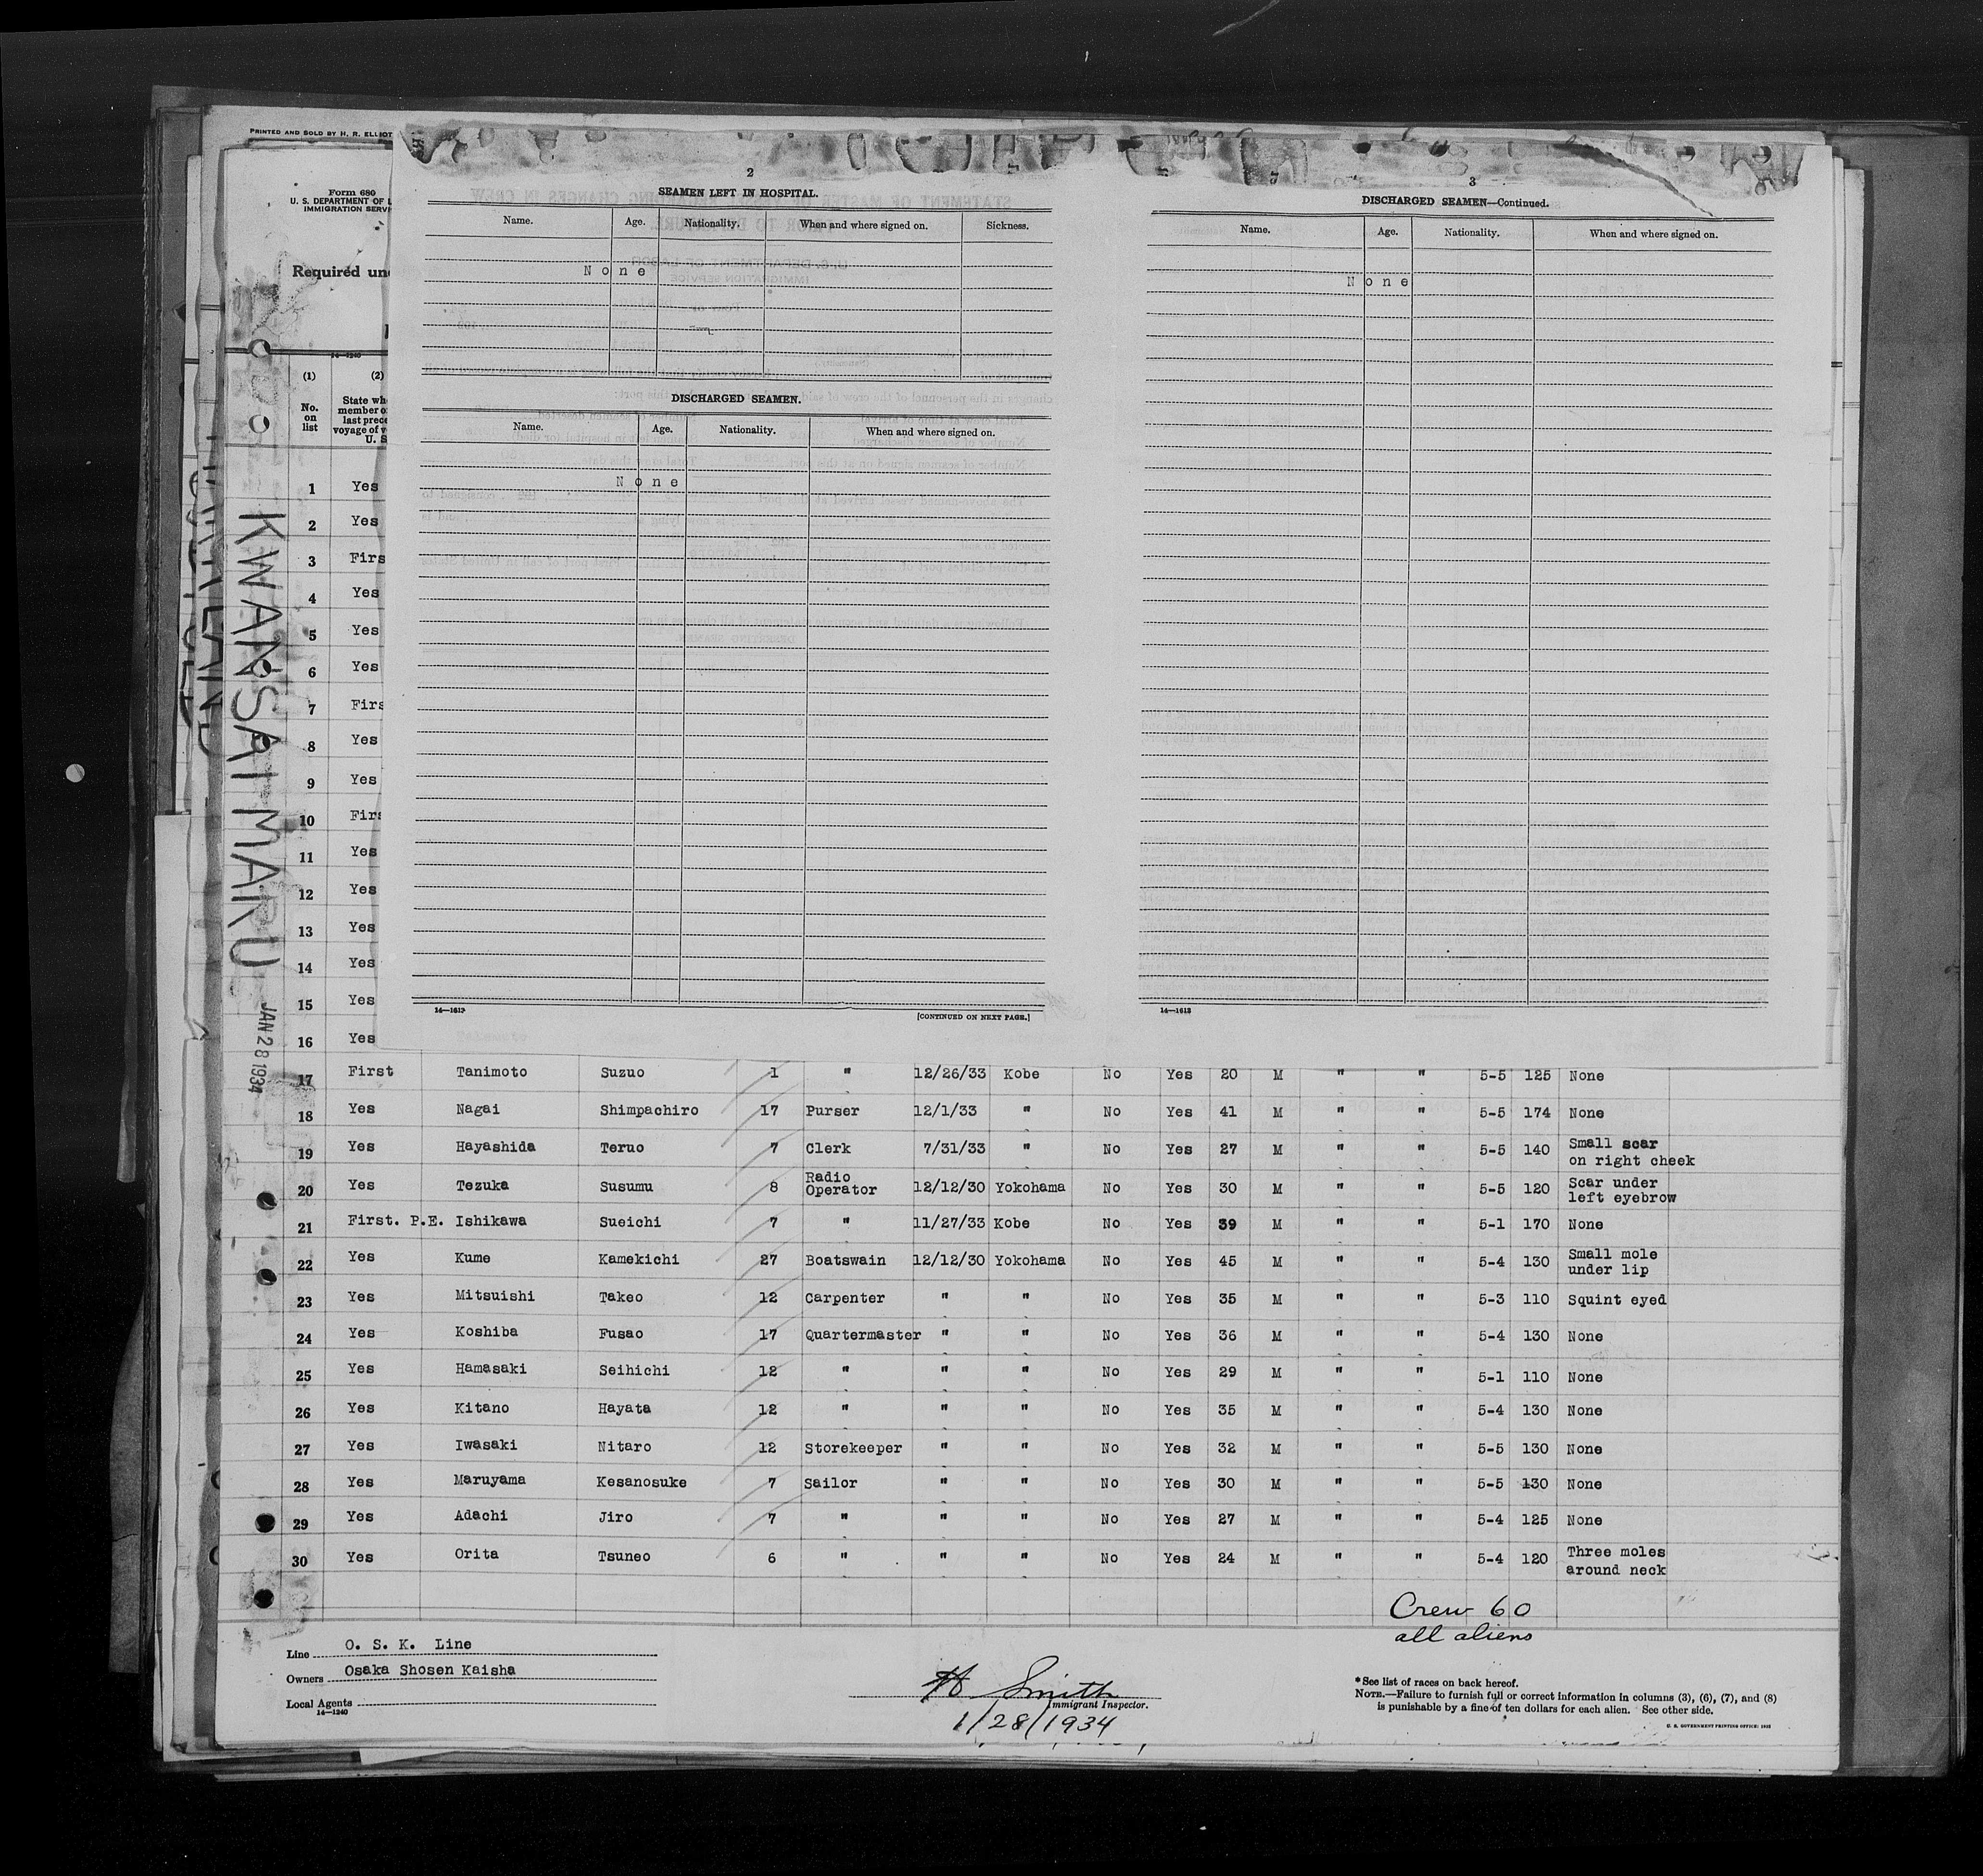 PRINTED AND SOLD BY H. R. ELLIOT
Form 680
U. S. DEPARTMENT OF L
IMMIGRATION SERV
Required un
14—1240
(1) (2)
No. on list
State wh
member o
last prece
voyage of v
U. S
1 Yes
2 Yes
3 Firs
4 Yes
5 Yes
6 Yes
7 Firs
8 Yes
9 Yes
10 Firs
11 Yes
12 Yes
13 Yes
14 Yes
15 Yes
16 Yes
KWANSAI MARU
JAN 28 1934
2
SEAMEN LEFT IN HOSPITAL.
Name. Age. Nationality. When and where signed on. Sickness.
None
DISCHARGED SEAMEN.
Name. Age. Nationality. When and where signed on.
None
14—1613
[CONTINUED ON NEXT PAGE.]
3
DISCHARGED SEAMEN—Continued.
Name. Age. Nationality. When and where signed on.
None
14—1613
17 First Tanimoto Suzuo 1 " 12/26/33 Kobe No Yes 20 M " " 5-5 125 None
18 Yes Nagai Shimpachiro 17 Purser 12/1/33 " No Yes 41 M " " 5-5 174 None
19 Yes Hayashida Teruo 7 Clerk 7/31/33 " No Yes 27 M " " 5-5 140 Small scar on right cheek
20 Yes Tezuka Susumu 8 Radio Operator 12/12/30 Yokohama No Yes 30 M " " 5-5 120 Scar under left eyebrow
21 First. P.E. Ishikawa Sueichi 7 " 11/27/33 Kobe No Yes 39 M " " 5-1 170 None
22 Yes Kume Kamekichi 27 Boatswain 12/12/30 Yokohama No Yes 45 M " " 5-4 130 Small mole under lip
23 Yes Mitsuishi Takeo 12 Carpenter " " No Yes 35 M " " 5-3 110 Squint eyed
24 Yes Koshiba Fusao 17 Quartermaster " " No Yes 36 M " " 5-4 130 None
25 Yes Hamasaki Seihichi 12 " " " No Yes 29 M " " 5-1 110 None
26 Yes Kitano Hayata 12 " " " No Yes 35 M " " 5-4 130 None
27 Yes Iwasaki Nitaro 12 Storekeeper " " No Yes 32 M " " 5-5 130 None
28 Yes Maruyama Kesanosuke 7 Sailor " " No Yes 30 M " " 5-5 130 None
29 Yes Adachi Jiro 7 " " " No Yes 27 M " " 5-4 125 None
30 Yes Orita Tsuneo 6 " " " No Yes 24 M " " 5-4 120 Three moles around neck
Crew 60
all aliens
Line O. S. K. Line
Owners Osaka Shosen Kaisha
Local Agents
14—1240
H Smith
Immigrant Inspector.
1/28/1934
* See list of races on back hereof.
NOTE.—Failure to furnish full or correct information in columns (3), (6), (7), and (8)
is punishable by a fine of ten dollars for each alien. See other side.
U. S. GOVERNMENT PRINTING OFFICE: 1932